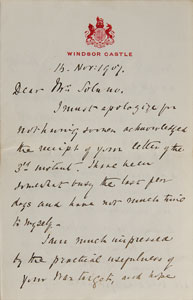 WINDSOR CASTLE
14. Nov: 1907.
Dear Mr Solano.
I must apologize for
not having sooner acknowledged
the receipt of your letter of the
3rd instant. I have been
somewhat busy the last few
days and have not much time
to myself.
I am much impressed
by the practical usefulness of
your War targets, and hope